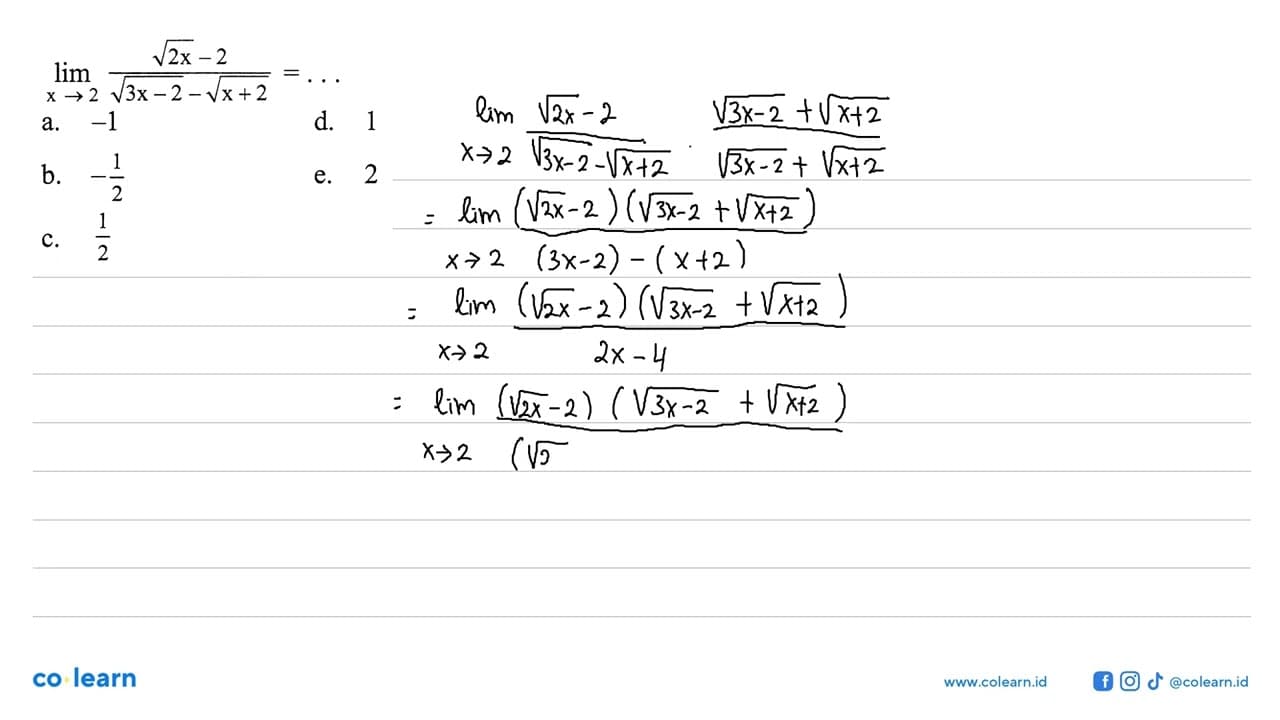 lim x→2 (√(2x) – 2)/(√(3x – 2) – √(x + 2)) = . . .
a. –1
b. –1/2
c. 1/2
d. 1
e. 2
lim x→2 (√(2x) - 2)/(√(3x-2) - √(x+2)) · (√(3x-2) + √(x+2))/(√(3x-2) + √(x+2))
= lim x→2 ((√(2x) - 2)(√(3x-2) + √(x+2)))/((3x-2) - (x+2))
= lim x→2 ((√(2x) - 2)(√(3x-2) + √(x+2)))/(2x - 4)
= lim x→2 ((√(2x) - 2)(√(3x-2) + √(x+2)))/(√2
co learn
www.colearn.id
@colearn.id